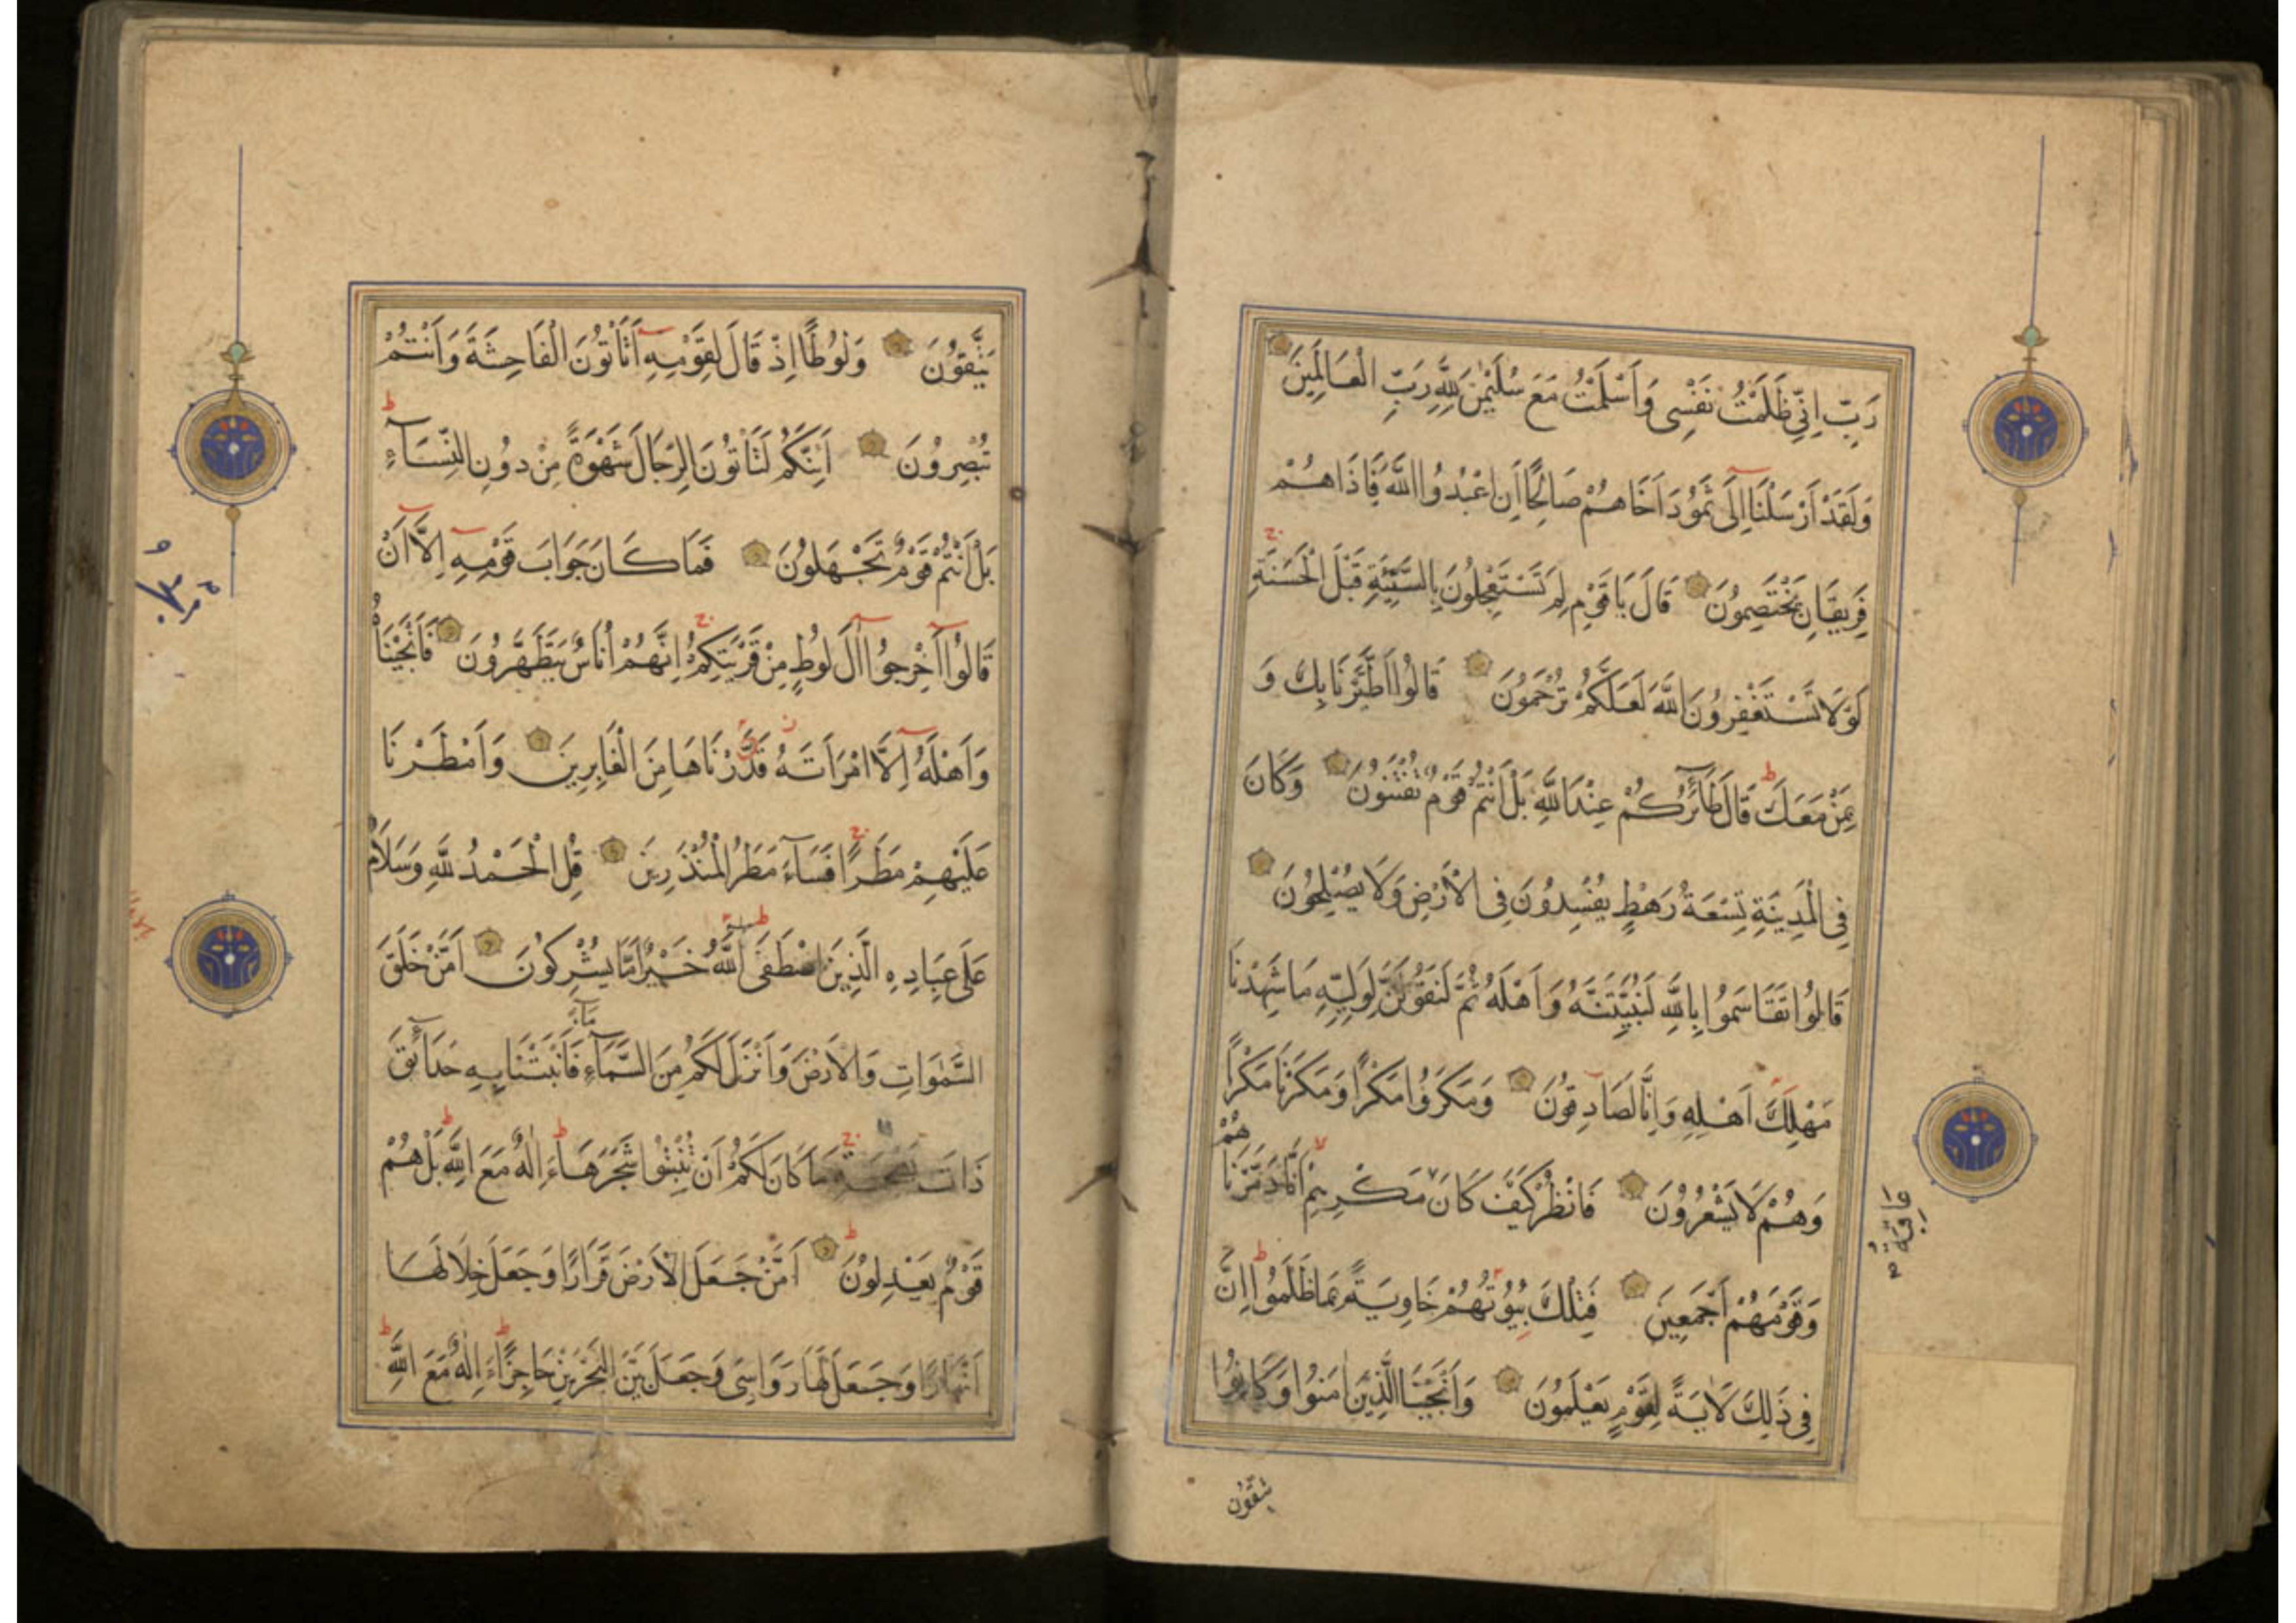 رَبِّ اِنِّي ظَلَمْتُ نَفْسِي وَاَسْلَمْتُ مَعَ سُلَيْمٰنَ لِلّٰهِ رَبِّ الْعَالَمِينَ
وَلَقَدْ اَرْسَلْنَا اِلَى ثَمُودَ اَخَاهُمْ صَالِحًا اَنِ اعْبُدُوا اللّٰهَ فَاِذَاهُمْ
فَرِيقَانِ يَخْتَصِمُونَ قَالَ يَا قَوْمِ لِمَ تَسْتَعْجِلُونَ بِالسَّيِّئَةِ قَبْلَ الْحَسَنَةِ
لَوْلَا تَسْتَغْفِرُونَ اللّٰهَ لَعَلَّكُمْ تُرْحَمُونَ قَالُوا اطَّيَّرْنَا بِكَ وَ
بِمَنْ مَعَكَ قَالَ طَائِرُكُمْ عِنْدَ اللّٰهِ بَلْ اَنْتُمْ قَوْمٌ تُفْتَنُونَ وَكَانَ
فِي الْمَدِينَةِ تِسْعَةُ رَهْطٍ يُفْسِدُونَ فِي الْاَرْضِ وَلَا يُصْلِحُونَ
قَالُوا تَقَاسَمُوا بِاللّٰهِ لَنُبَيِّتَنَّهُ وَاَهْلَهُ ثُمَّ لَنَقُولَنَّ لِوَلِيِّهِ مَا شَهِدْنَا
مَهْلِكَ اَهْلِهِ وَاِنَّا لَصَادِقُونَ وَمَكَرُوا مَكْرًا وَمَكَرْنَا مَكْرًا
وَهُمْ لَا يَشْعُرُونَ فَانْظُرْ كَيْفَ كَانَ مَكْرِهِمْ اَنَّا دَمَّرْنَاهُمْ
عَاقِبَةُ
وَقَوْمَهُمْ اَجْمَعِينَ فَتِلْكَ بُيُوتُهُمْ خَاوِيَةً بِمَا ظَلَمُوا اِنَّ
فِي ذٰلِكَ لَاٰيَةً لِقَوْمٍ يَعْلَمُونَ وَاَنْجَيْنَا الَّذِينَ اٰمَنُوا وَكَانُوا
يَتَّقُونَ
يَتَّقُونَ وَلُوطًا اِذْ قَالَ لِقَوْمِهِ اَتَاْتُونَ الْفَاحِشَةَ وَاَنْتُمْ
تُبْصِرُونَ اَئِنَّكُمْ لَتَاْتُونَ الرِّجَالَ شَهْوَةً مِنْ دُونِ النِّسَآءِ
بَلْ اَنْتُمْ قَوْمٌ تَجْهَلُونَ فَمَا كَانَ جَوَابَ قَوْمِهِ اِلَّا اَنْ
قَالُوا اَخْرِجُوا اٰلَ لُوطٍ مِنْ قَرْيَتِكُمْ اِنَّهُمْ اُنَاسٌ يَتَطَهَّرُونَ فَاَنْجَيْنَاهُ
وَاَهْلَهُ اِلَّا امْرَاَتَهُ قَدَّرْنَاهَا مِنَ الْغَابِرِينَ وَاَمْطَرْنَا
عَلَيْهِمْ مَطَرًا فَسَآءَ مَطَرُ الْمُنْذَرِينَ قُلِ الْحَمْدُ لِلّٰهِ وَسَلَامٌ
عَلَى عِبَادِهِ الَّذِينَ اصْطَفَى آللّٰهُ خَيْرٌ اَمَّا يُشْرِكُونَ اَمَّنْ خَلَقَ
السَّمٰوَاتِ وَالْاَرْضَ وَاَنْزَلَ لَكُمْ مِنَ السَّمَآءِ مَآءً فَاَنْبَتْنَا بِهِ حَدَآئِقَ
ذَاتَ بَهْجَةٍ مَا كَانَ لَكُمْ اَنْ تُنْبِتُوا شَجَرَهَا ءَاِلٰهٌ مَعَ اللّٰهِ بَلْ هُمْ
قَوْمٌ يَعْدِلُونَ اَمَّنْ جَعَلَ الْاَرْضَ قَرَارًا وَجَعَلَ خِلَالَهَا
اَنْهَارًا وَجَعَلَ لَهَا رَوَاسِيَ وَجَعَلَ بَيْنَ الْبَحْرَيْنِ حَاجِزًا ءَاِلٰهٌ مَعَ اللّٰهِ